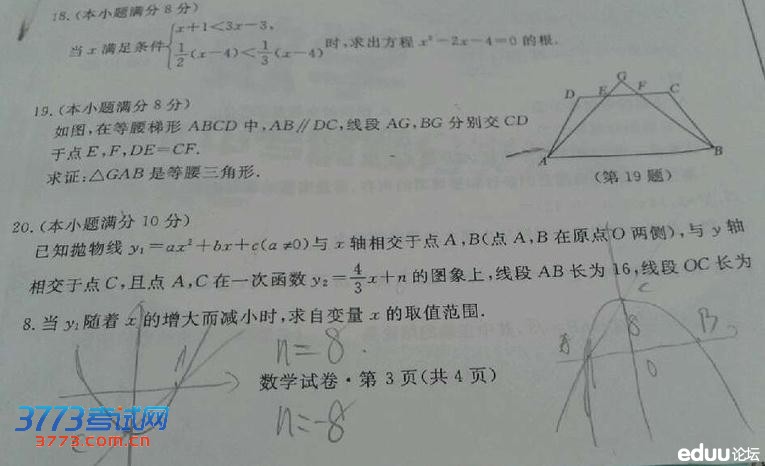 18.(本小题满分8分)
当x满足条件{x+1<3x-3, 1/2(x-4)<1/3(x-4)时,求出方程x²-2x-4=0的根.
19.(本小题满分8分)
如图,在等腰梯形ABCD中,AB∥DC,线段AG,BG分别交CD
于点E,F,DE=CF.
求证:△GAB是等腰三角形.
G
D E F C
A B
(第19题)
20.(本小题满分10分)
已知抛物线y₁=ax²+bx+c(a≠0)与x轴相交于点A,B(点A,B在原点O两侧),与y轴
相交于点C,且点A,C在一次函数y₂=4/3x+n的图象上,线段AB长为16,线段OC长为
8.当y₁随着x的增大而减小时,求自变量x的取值范围.
n=8.
C
8
B
O
A
数学试卷·第3页(共4页)
n=-8
C
3773考试网
3773.com.cn
eduu论坛